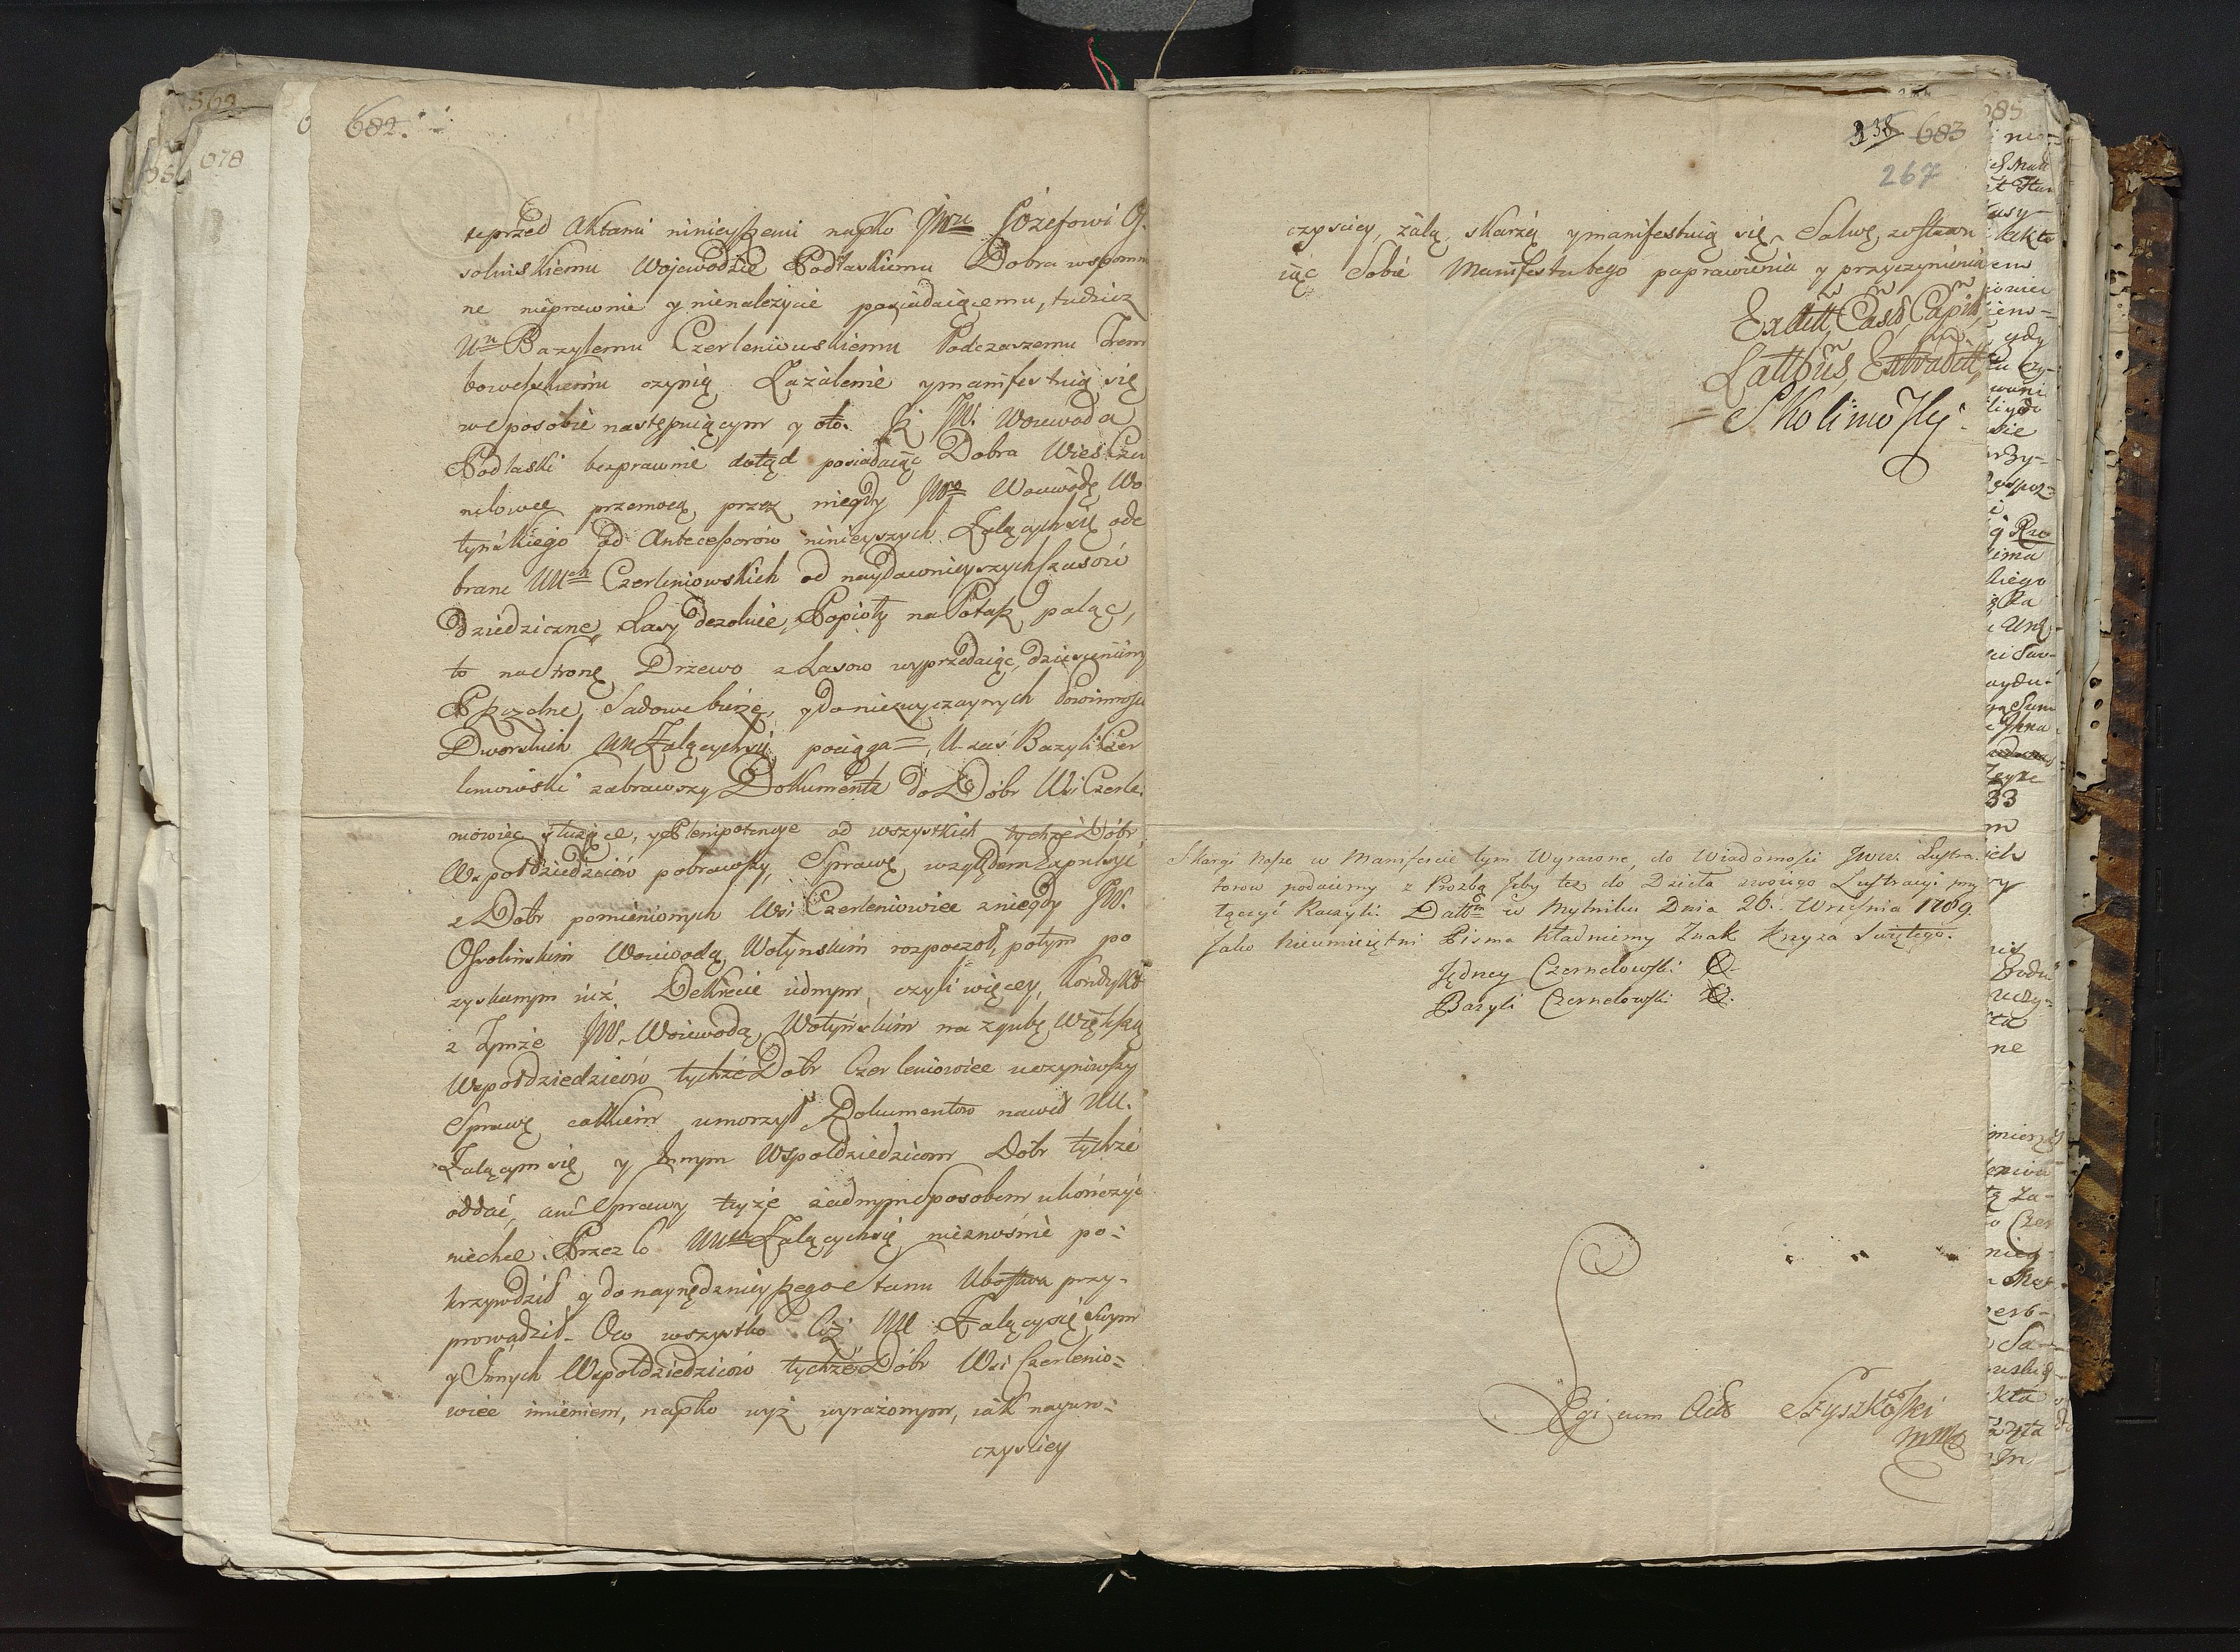 682.
teprzed Aktami ninieyszemi napko JWu Józefowi Os
solinskiemu Wojewodzie Podlaskiemu Dobra wspomn
ne nieprawnie y nienależycie posiadaiącemu, tudzież
Un Bazylemu Czerleniowskiemu Podczaszemu Trem
bowelskiemu czynią Zażalenie ymanifestuią się
w sposobie następuiącym y oto. Jż JW. Woiewoda
Podlaski bezprawnie dotąd posiadaiąc Dobra Wieś Czer
niłowce przemocą przez niegdy JWo Woiewodę Wo
łyńskiego od Antecessorow ninieyszych Żalących się ode
brane UUch Czerleniowskich od naydawnieyszych Czasow
Dziedziczne, Lasy dezoluie, Popioły na Potasz paląc,
to na Stronę Drzewo z Lasow wyprzedaiąc, dziesięciny
Pszczelne, Sadowe bierze, y do niezwyczaynych Powinnosci
Dworskich UU Żalących się pociąga, U. zaś Bazyli Czer
leniowski zabrawszy Dokumenta do Dóbr Wsi Czerle-
niowiec służące, y Plenipotencye od wszystkich tychże Dóbr
Wspołdziedziców pobrawszy, Sprawę względem Expulsyi
z Dobr pomienionych Wsi Czerleniowiec z niegdy JW.
Ossolinskim Woiewodą Wołynskim rozpoczoł, potym po
zyskanym iuż Dekrecie iednym, czyli więcey, Kondykt
z Tymże JW. Woiewodą Wołyńskim na zgubę Większą
Wspołdziedziców tychże Dobr Czerleniowiec uczyniwszy
Sprawę całkiem umorzył, Dokumentow nawet UU.
Żalącym się y Innym Wspołdziedzicom Dobr tychże
oddać, ani Sprawy teyże żadnym Sposobem ukończyć
niechce. Przez co UUch Żalących się nieznośnie po-
krzywdził y do naynędznieyszego Stanu Ubostwa przy-
prowadził. Oco wszystko Ciż UU Żalący się Swym
y Innych Wspołdziedziców tychże Dóbr Wsi Czerlenio-
wiec imieniem, napko wyż wyrażonym, iak nayuro-
czyściey
338 683
267
czysciey, żalą, skarżą ymanifestuią się. Salwę zostawu
iąc Sobie Manifestu tego poprawienia y przyczynienia
Ex Actis Cast. Capit.
Extradit
Skolimoski
Skargi nasze w Manifescie tym Wyrazone, do Wiadomosci JWW. Lustra-
torow podaiemy z Prozbą Jżby też do Dzieła swoiego Lustracyi przy
łączyć Raczyli. Datt w Mytniku Dnia 26. Wrzesnia 1789.
Jako nieumieiętni Pisma kładniemy Znak Krzyza Swiętego.
Jędrzey Czernelowski
Bazyli Czernelowski
Lgi cum Actis Szyszkoski
mmp